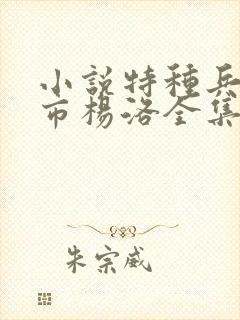 小說特種兵
市楊洛全集
朱宗威